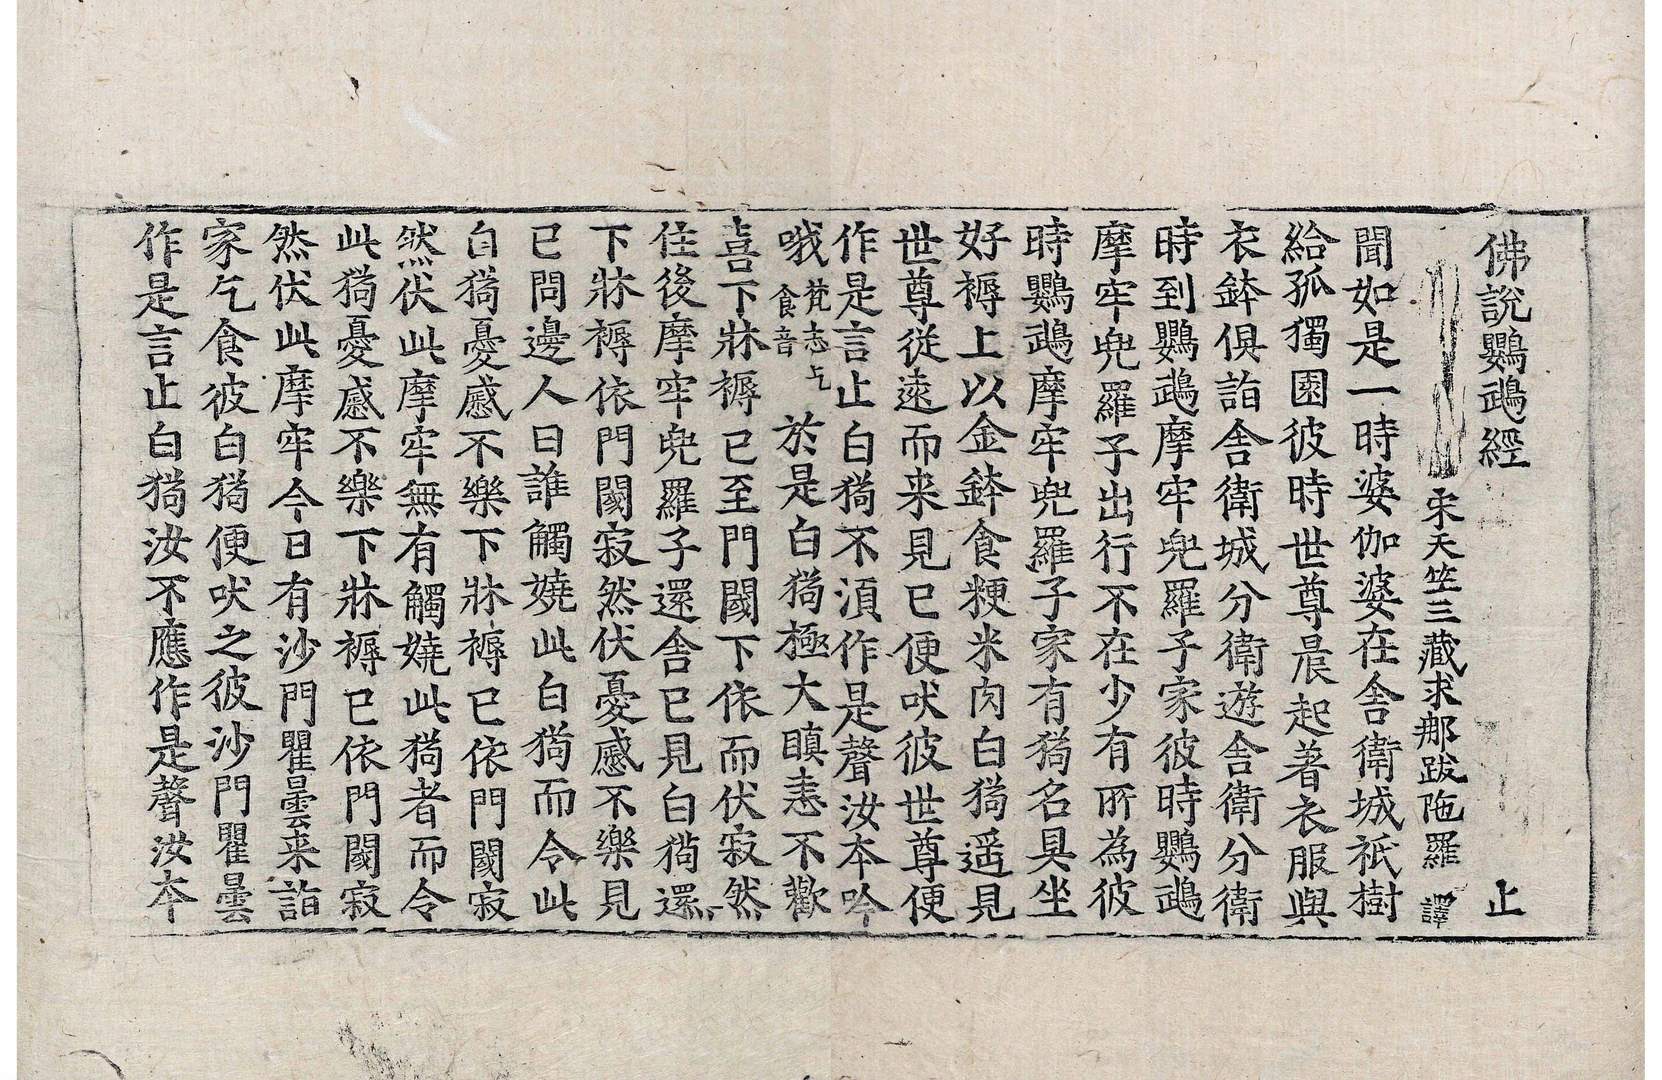 佛說鸚鵡經 止
宋天竺三藏求那跋陁羅 譯
聞如是一時婆伽婆在舍衛城祇樹
給孤獨園彼時世尊晨起著衣服與
衣鉢俱詣舍衛城分衛遊舍衛分衛
時到鸚鵡摩牢兜羅子家彼時鸚鵡
摩牢兜羅子出行不在少有所為彼
時鸚鵡摩牢兜羅子家有猗名具坐
好褥上以金鉢食粳米肉白猗遥見
世尊從遠而来見已便吠彼世尊便
作是言止白猗不湏作是聲汝本吟
哦梵志乞食音於是白猗極大瞋恚不歡
喜下牀褥已至門閫下依而伏寂然
住後摩牢兜羅子還舍已見白猗還
下牀褥依門閫寂然伏憂慼不樂見
已問邊人曰誰觸嬈此白猗而令此
白猗憂慼不樂下牀褥已依門閫寂
然伏此摩牢無有觸嬈此猗者而令
此猗憂慼不樂下牀褥已依門閫寂
然伏此摩牢今日有沙門瞿曇来詣
家乞食彼白猗便吠之彼沙門瞿曇
作是言止白猗汝不應作是聲汝本